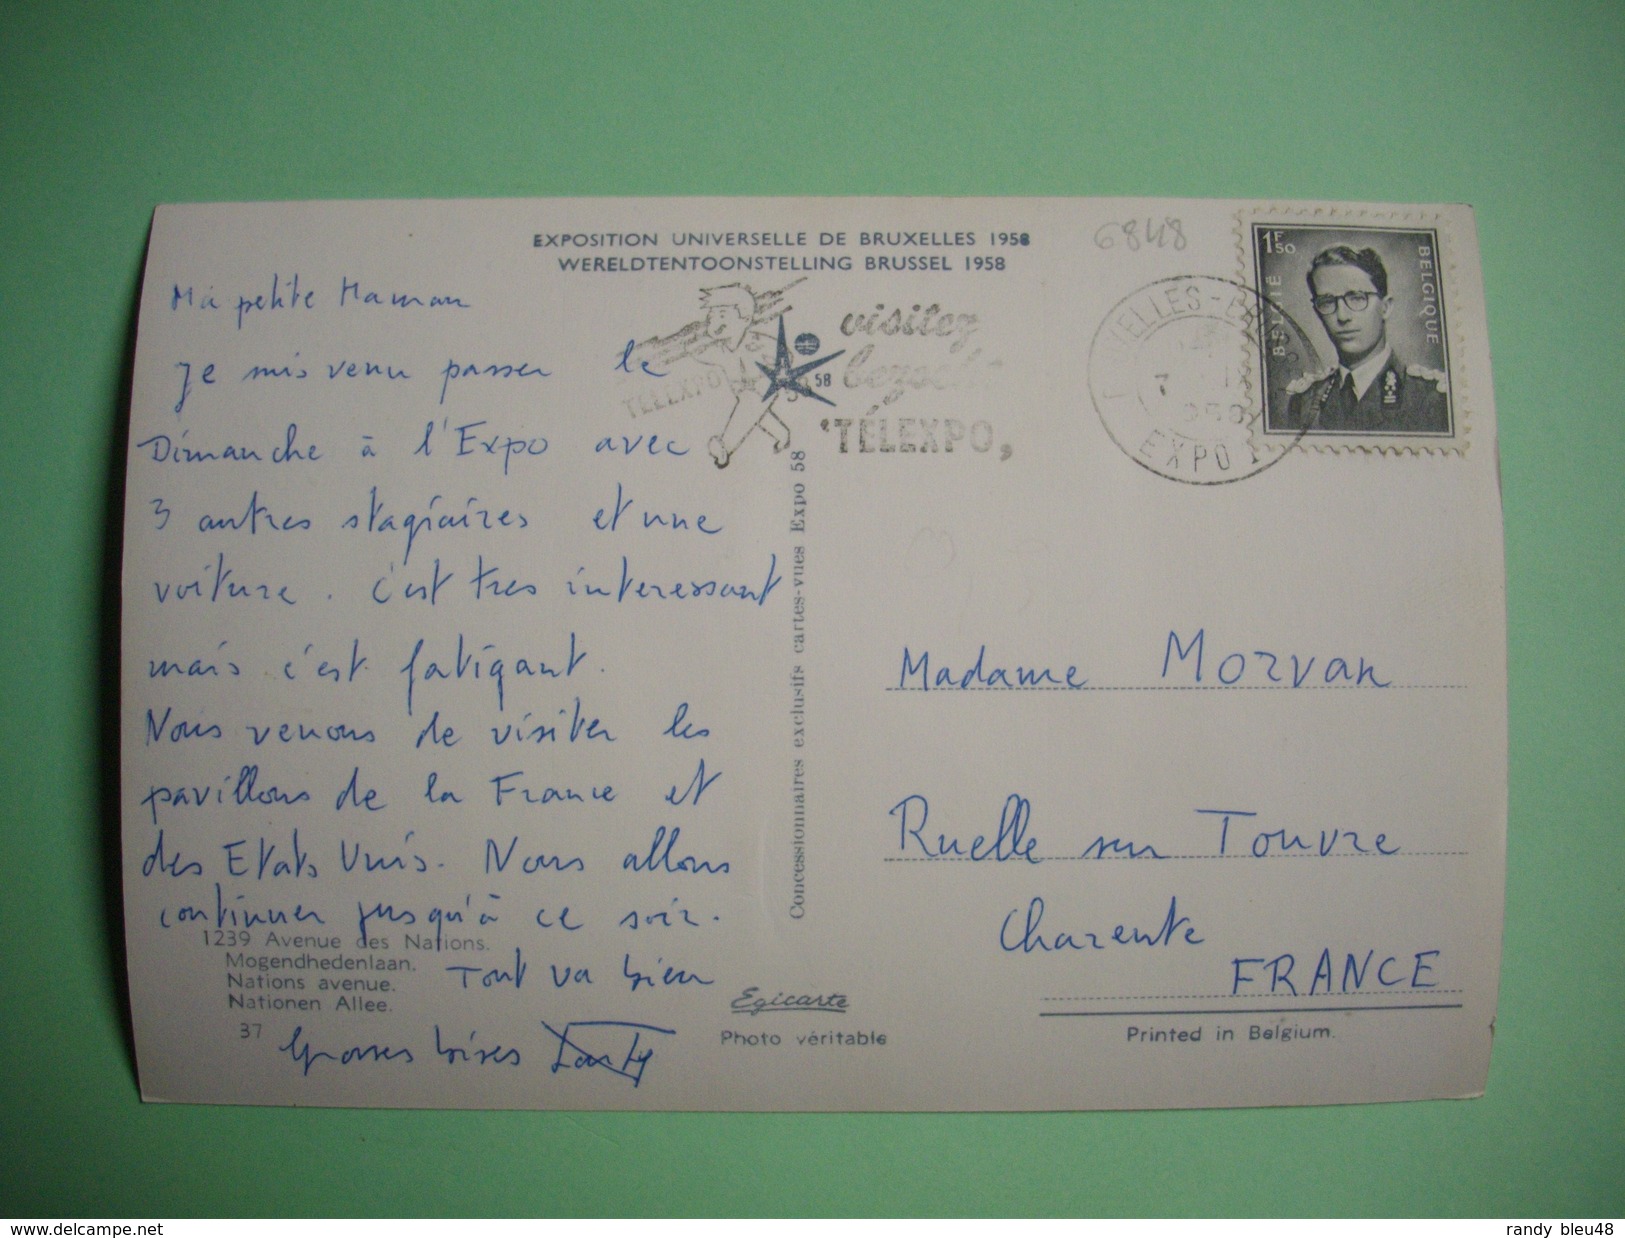 EXPOSITION UNIVERSELLE DE BRUXELLES 1958
WERELDTENTOONSTELLING BRUSSEL 1958
6848
1F50
BELGIE
BELGIQUE
visitez
bezocht
"TÉLEXPO"
TELEXPO
58
ELLES-B
7
958
EXPO
Ma petite Maman
Je suis venu passer le
Dimanche à l'Expo avec
3 autres stagiaires et une
voiture. C'est tres interessant
mais c'est fatigant.
Nous venons de visiter les
pavillons de la France et
des Etats Unis. Nous allons
continuer jusqu'à ce soir.
Tout va bien
Grosses bises
1239 Avenue des Nations.
Mogendhedenlaan.
Nations avenue.
Nationen Allee.
37
Concessionnaires exclusifs cartes-vues Expo 58
Egicarte
Photo véritable
Madame MORVAN
Ruelle sur Touvre
Charente
FRANCE
Printed in Belgium.
www.delcampe.net
randy_bleu48